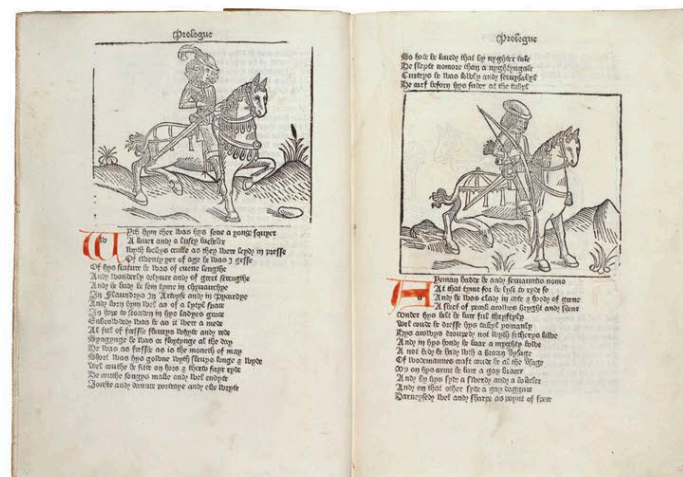 Prologue
With hym ther was hys sone a yong squyer
A louer and a lusty bacheler
Wyth lockys crulle as they were leyd in presse
Of twenty yer of age he was I gesse
Of hys stature he was of euene lengthe
And wonderly delyuer and of greet strengthe
And he hadde be som tyme in chyuauchye
In Flaundrys in Artoys and in Pycardye
And born hym wel as of a lytyl space
In hope to stonden in hys ladyes grace
Enbrowdred was he as it were a mede
Al ful of fresshe flourys whyte and rede
Syngynge he was or floytynge al the day
He was as fressh as is the moneth of may
Short was hys gowne wyth sleuys longe &amp; wyde
Wel coude he sitte on hors &amp; therto fayr ryde
He couthe songys make and wel endyte
Iouste and daunce portreye and wel wryte
Prologue
So hote he louede that by nyghter tale
He slepte nomore than a nyghtyngale
Curteys he was lowly and seruysabyl
He carf beforn hys fader at the tabyl
A yeman hadde he and seruauntis nomo
At that tyme for he lyst to ryde so
And he was clad in cote &amp; hood of grene
Vnder hys belt he bar ful thryftyly
Wel coude he dresse hys takyl yomanly
Hys arowys drouped not wyth fetherys lowe
And in hys hond he baar a myghty bowe
A not hed he had with a broun vysage
Of wodemannes craft coude he al the vsage
Vpon hys arme he baar a gay bracer
And by hys syde a swerd and a bokeler
And on that other syde a gay daggar
Harneysed wel and sharpe as poynt of spere